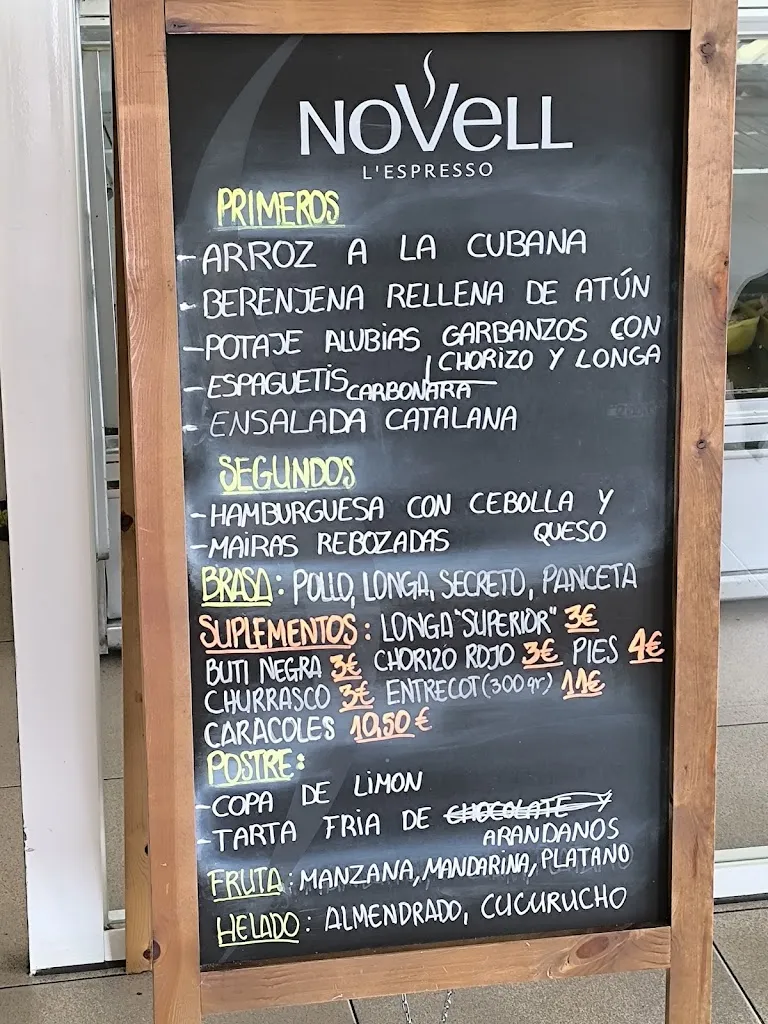 NOVELL
L'ESPRESSO
PRIMEROS
- ARROZ A LA CUBANA
- BERENJENA RELLENA DE ATÚN
- POTAJE ALUBIAS GARBANZOS CON
CHORIZO Y LONGA
- ESPAGUETIS CARBONARA
- ENSALADA CATALANA
SEGUNDOS
- HAMBURGUESA CON CEBOLLA Y
QUESO
- MAIRAS REBOZADAS
BRASA: POLLO, LONGA, SECRETO, PANCETA
SUPLEMENTOS: LONGA "SUPERIOR" 3€
BUTI NEGRA 3€ CHORIZO ROJO 3€ PIES 4€
CHURRASCO 3€ ENTRECOT (300 gr) 11€
CARACOLES 10,50€
POSTRE:
- COPA DE LIMON
- TARTA FRIA DE CHOCOLATE Y
ARANDANOS
FRUTA: MANZANA, MANDARINA, PLATANO
HELADO: ALMENDRADO, CUCURUCHO